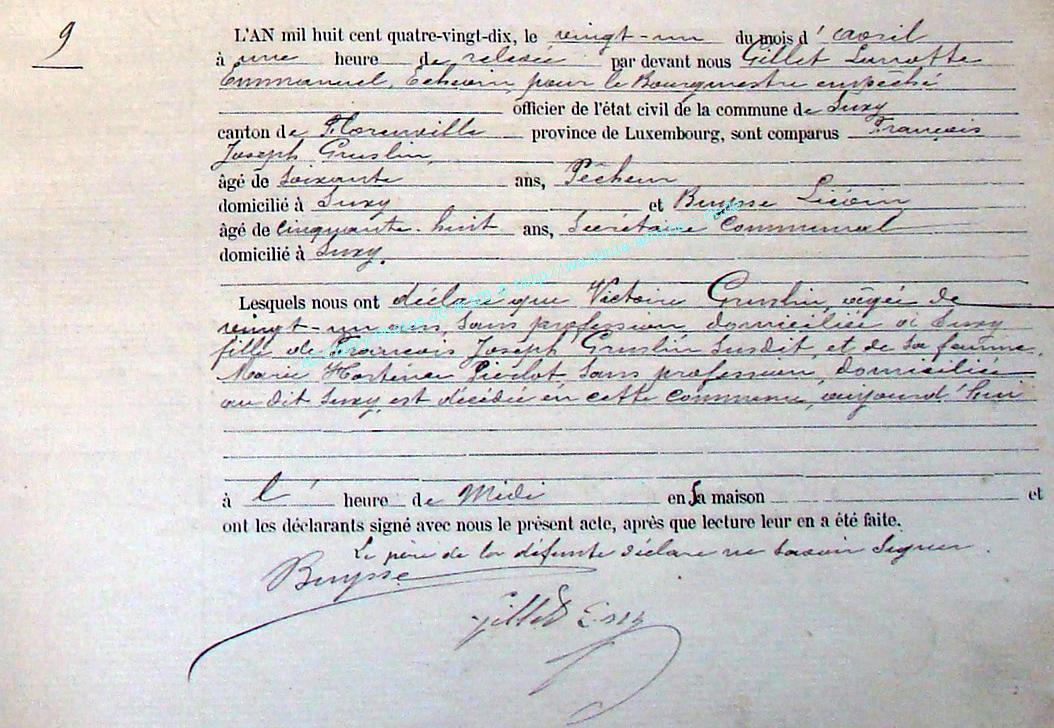 9
L'AN mil huit cent quatre-vingt-dix, le vingt-un du mois d'avril
à une heure de relevée par devant nous Gillet Lamotte
Emmanuel, Echevin, pour le Bourgmestre empêché
officier de l'état civil de la commune de Suxy
canton de Florenville province de Luxembourg, sont comparus François
Joseph Gruslin,
âgé de Soixante ans, Pêcheur
domicilié à Suxy et Buysse
âgé de Cinquante-huit ans, Secrétaire Communal
domicilié à Suxy.
Lesquels nous ont déclaré que Victoire Gruslin, âgée de
vingt-un ans, sans profession, domiciliée à Suxy
fille de François Joseph Gruslin susdit, et de sa femme,
Marie sans profession, domiciliée
au dit Suxy, est décédée en cette commune, aujourd'hui
à l' heure de Midi en Sa maison et
ont les déclarants signé avec nous le présent acte, après que lecture leur en a été faite.
Le père de la défunte déclare ne savoir signer.
Buysse
Gillet